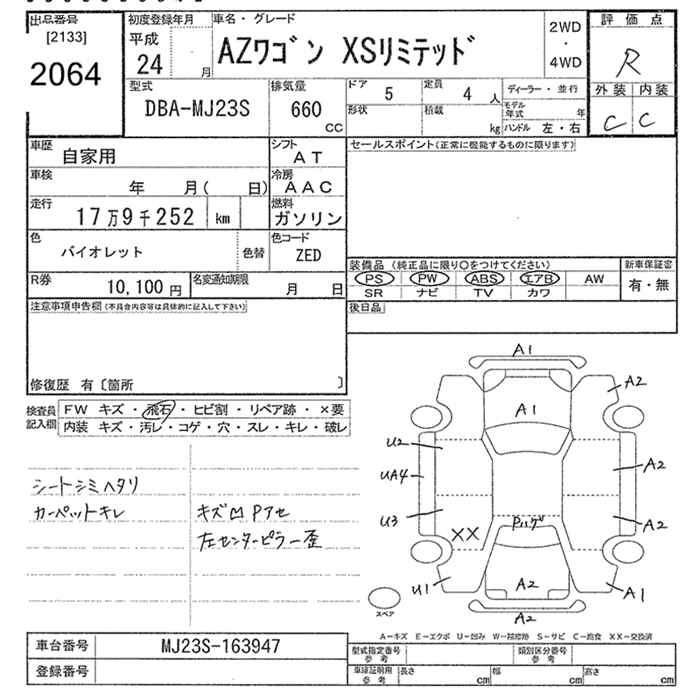 出品番号
[2133]
2064
初度登録年月
平成
24 月
車名・グレード
AZワゴン XSリミテッド
2WD
・
4WD
評価点
R
外装 内装
C C
型式
DBA-MJ23S
排気量
660
CC
ドア 5
定員 4 人
形状
積載 kg
ディーラー・並行
モデル年式 年
ハンドル 左・右
車歴 自家用
シフト AT
車検 年 月( 日)
冷房 AAC
走行 17万9千252 km
燃料 ガソリン
色 バイオレット 色替
色コード ZED
R券 10,100 円
名変通知期限 月 日
セールスポイント(正常に機能するものに限ります)
装備品 (純正品に限り○をつけてください)
新車保証書
PS PW ABS エアB AW
有・無
SR ナビ TV カワ
後日品
注意事項申告欄(不具合内容等は具体的に記入して下さい)
修復歴 有〔箇所 〕
検査員記入欄
FW キズ・飛石・ヒビ割・リペア跡・×要
内装 キズ・汚レ・コゲ・穴・スレ・キレ・破レ
シートシミヘタリ
カーペットキレ
キズ凹Pアセ
左センターピラー歪
A1
A2
A1
U2
A2
UA4
U3
XX
Pハゲ
A2
U1
A2
A1
A2
スペア
A-キズ E-エクボ U-凹み W-補修跡 S-サビ C-腐食 XX-交換済
車台番号 MJ23S-163947
登録番号
型式指定番号 参考
類別区分番号 参考
車庫証明用 参考
長さ cm
幅 cm
高さ cm